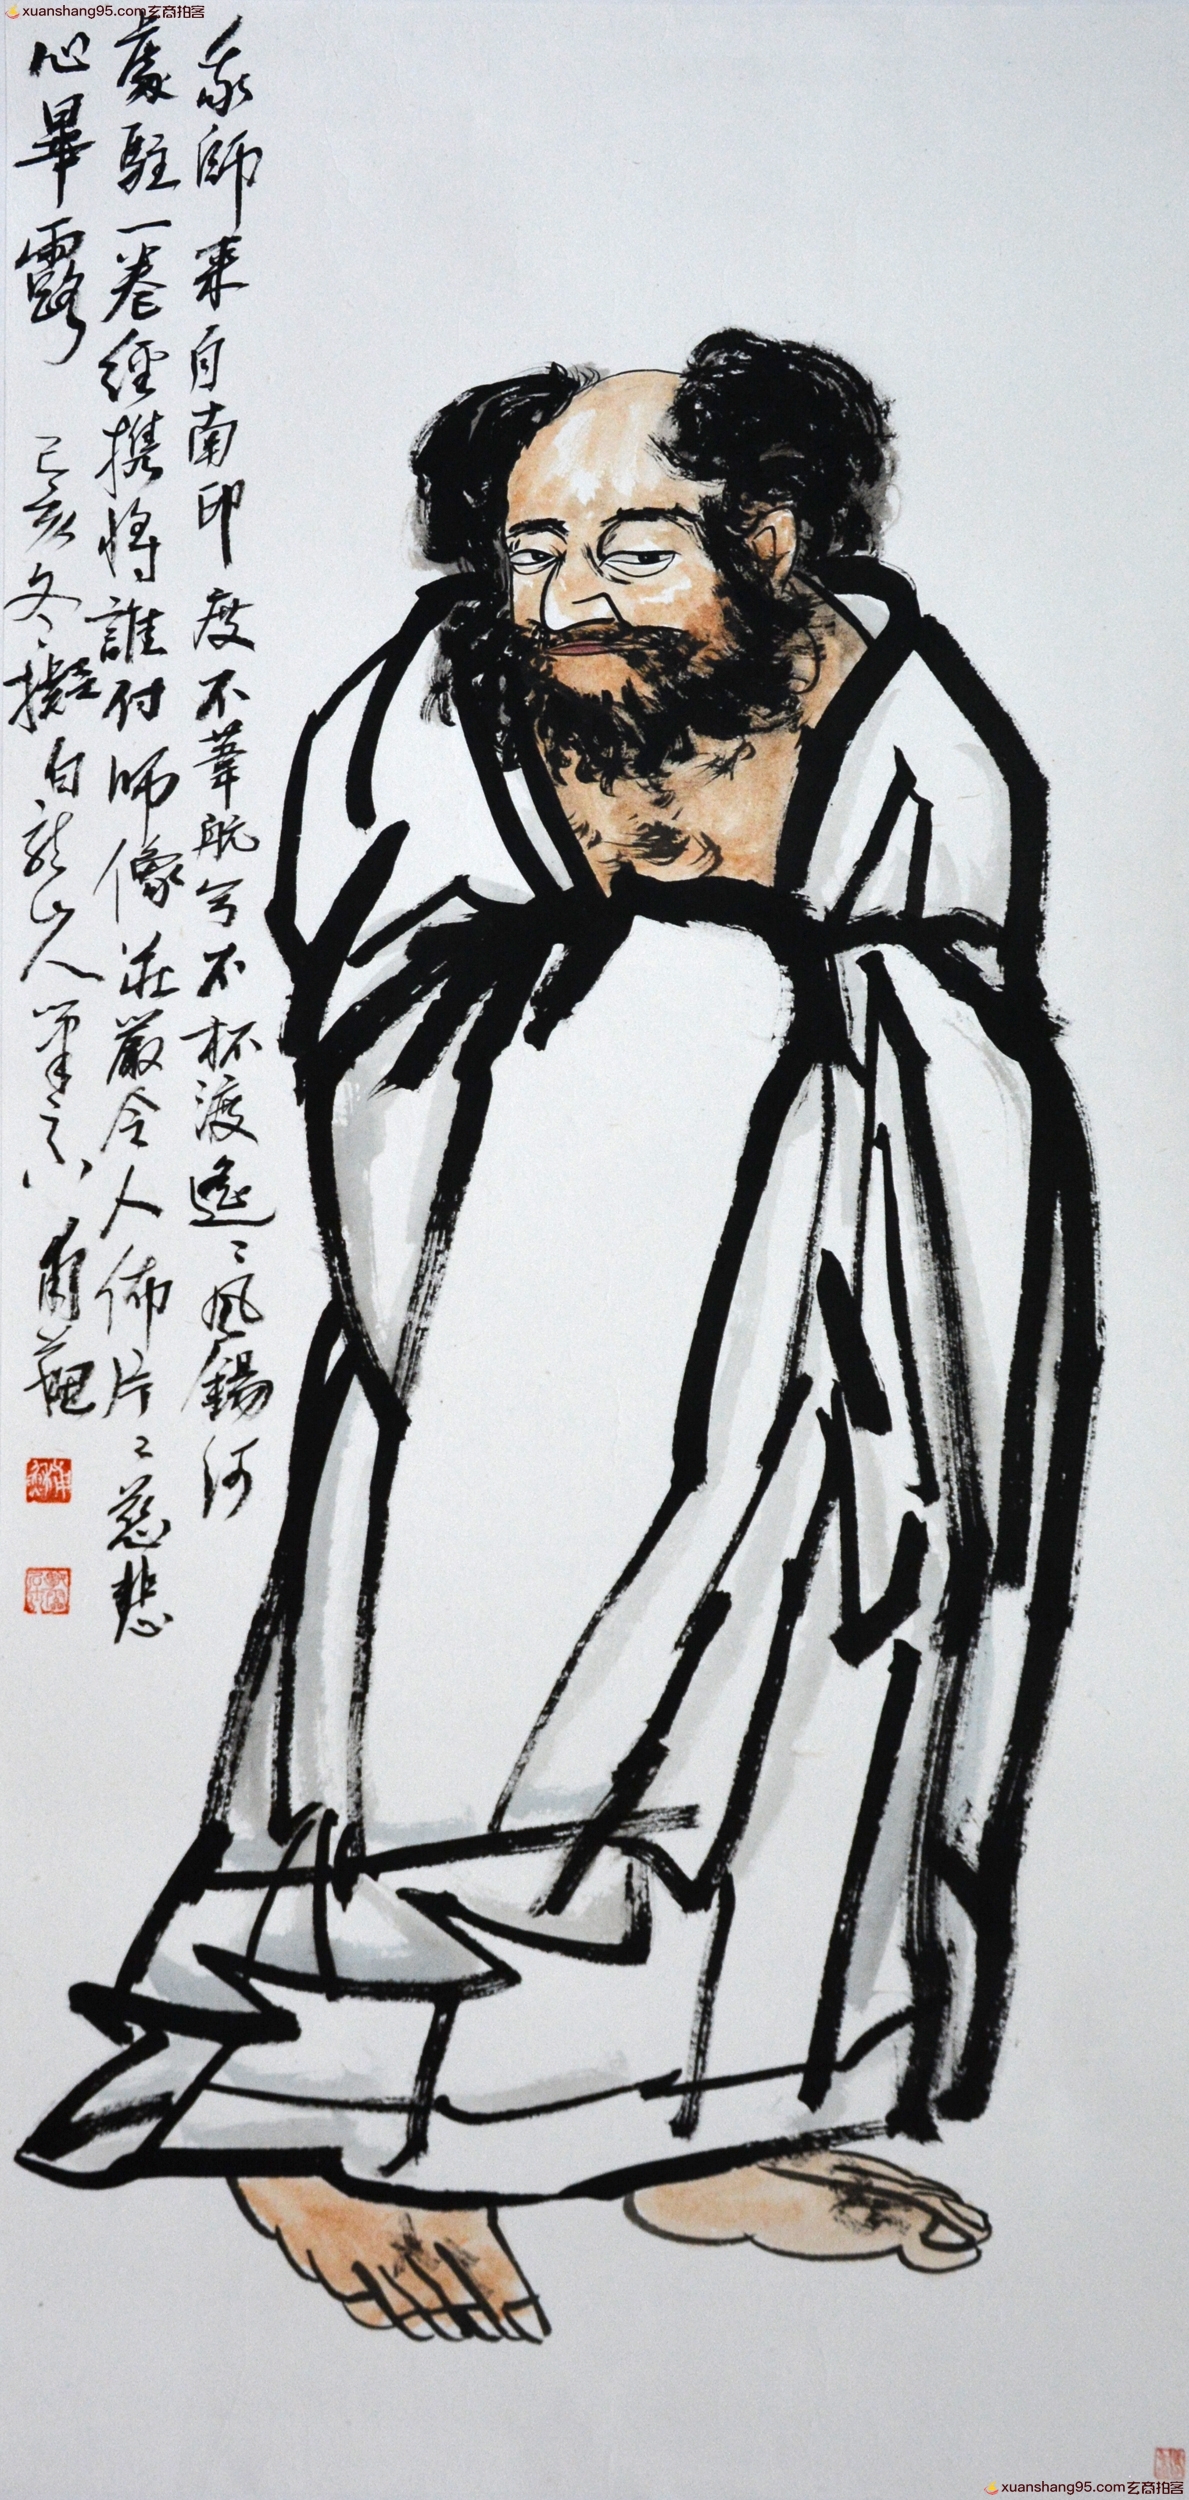 xuanshang95.com玄商拍客
我師来自南印度不葦航兮不杯渡遙〻風錫何
處駐一卷經携將誰付師像莊嚴令人佈片〻慈悲
心畢露
己亥冬〻擬白龍山人筆意
xuanshang95.com玄商拍客